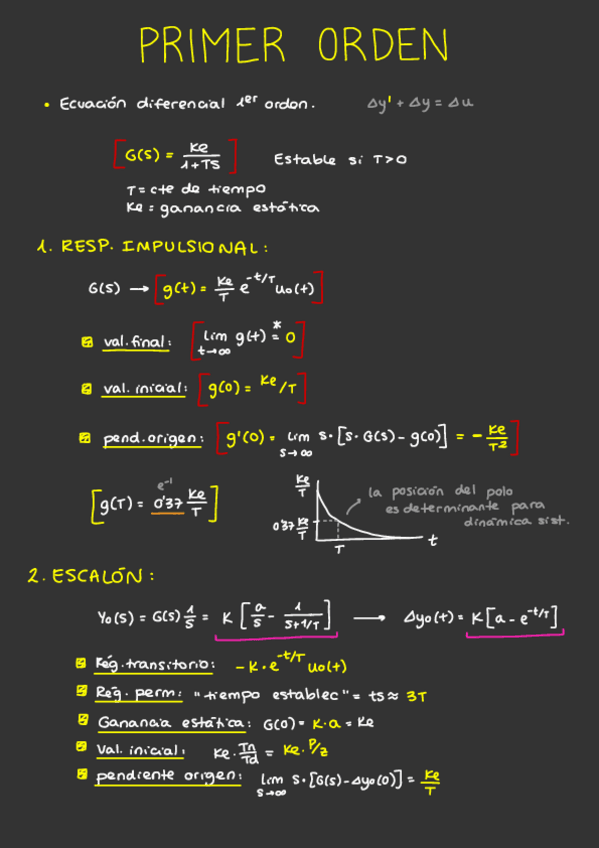 PRIMER ORDEN
• Ecuación diferencial 1er orden. Δy' + Δy = Δu
[G(s) = Ke/(1+Ts)] Estable si T>0
T = cte de tiempo
Ke = ganancia estática
1. RESP. IMPULSIONAL:
G(s) → [g(t) = Ke/T e^(-t/T) uo(t)]
val.final: [lim t→∞ g(t) =* 0]
val. inicial: [g(0) = Ke/T]
pend.origen: [g'(0) = lim s→∞ s·[s·G(s) - g(0)] = - Ke/T²]
[g(T) = 0'37 Ke/T] e^-1
Ke/T
0'37 Ke/T
T
t
la posición del polo
es determinante para
dinámica sist.
2. ESCALÓN:
Yo(s) = G(s) 1/s = K [a/s - 1/(s+1/T)] → Δyo(t) = K[a - e^(-t/T)]
Rég.transitorio: -K·e^(-t/T) uo(t)
Rég. perm: "tiempo establec" = ts ≈ 3T
Ganancia estática: G(0) = K·a = Ke
Val. inicial: Ke · Tn/Td = Ke · P/z
pendiente origen: lim s→∞ s·[G(s) - Δyo(0)] = Ke/T